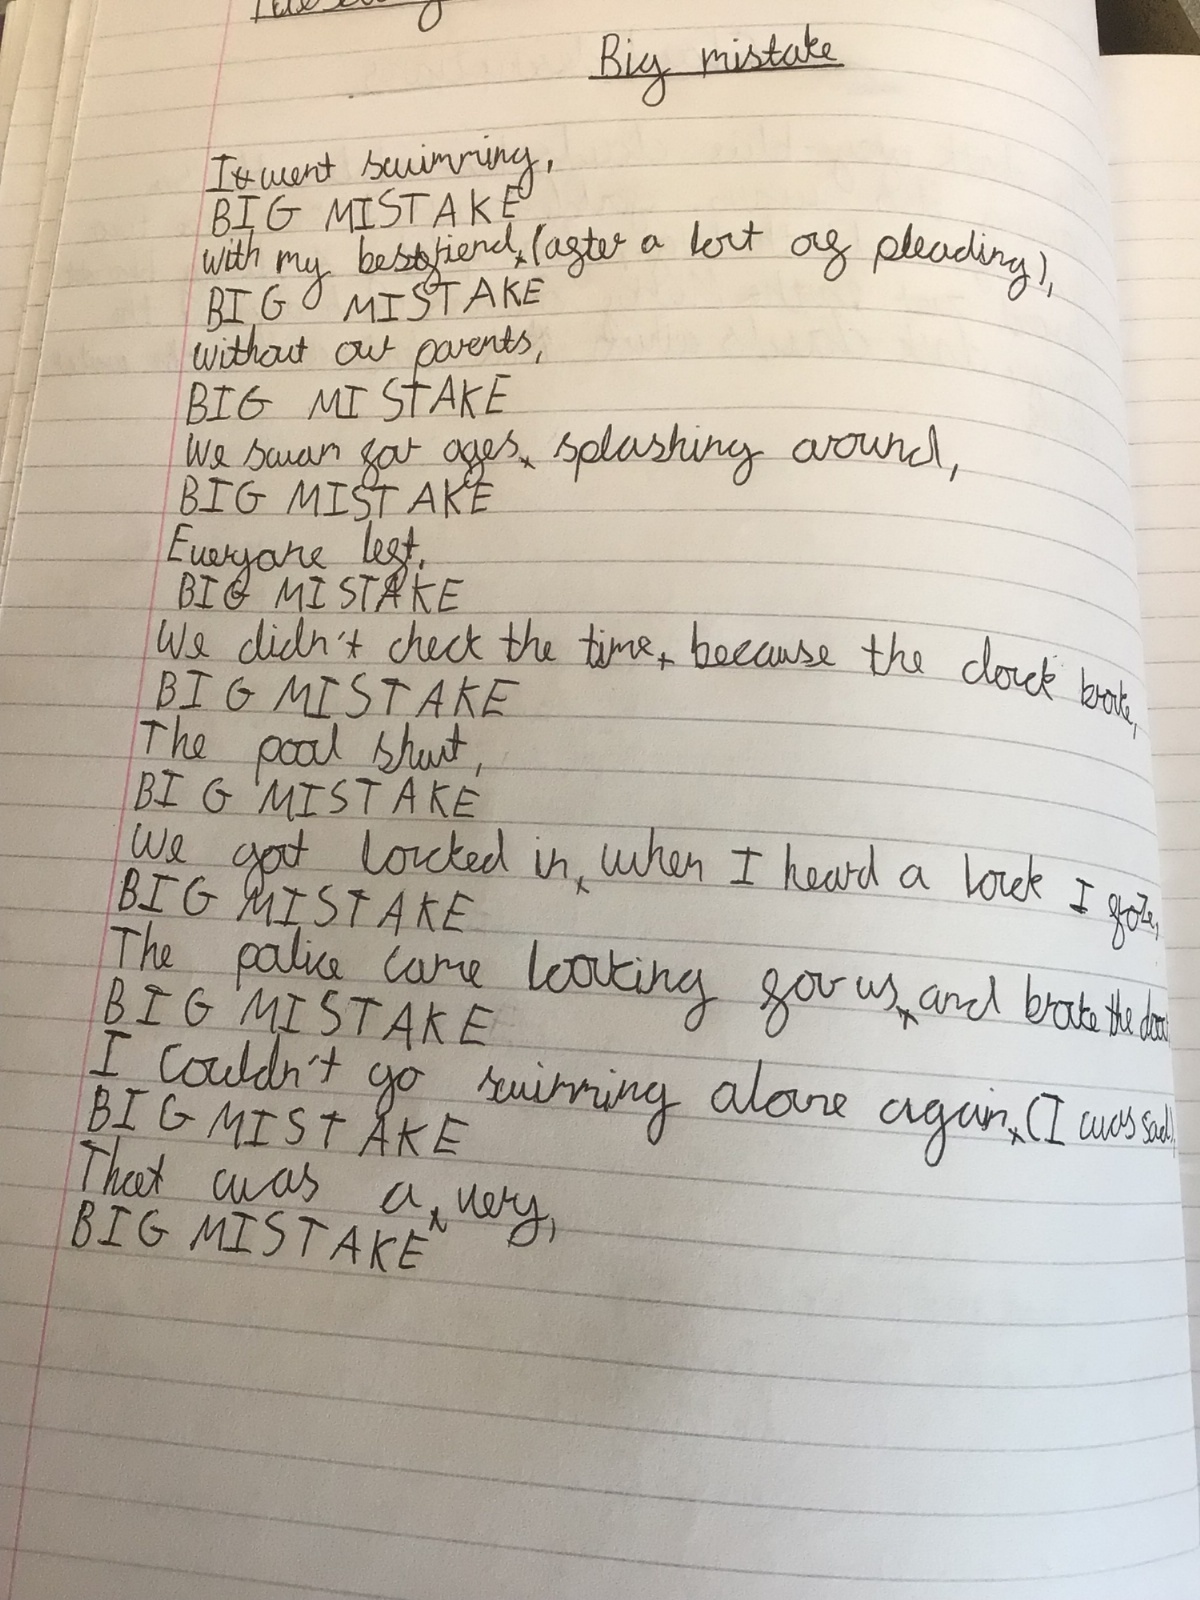 Big mistake
I went swimming,
BIG MISTAKE
with my bestfriend, (after a lot of pleading),
BIG MISTAKE
without our parents,
BIG MISTAKE
We swam for ages, splashing around,
BIG MISTAKE
Everyone left,
BIG MISTAKE
We didn't check the time, because the clock broke,
BIG MISTAKE
The pool shut,
BIG MISTAKE
We got locked in, when I heard a lock I froze,
BIG MISTAKE
The police came looking for us, and broke the door
BIG MISTAKE
I couldn't go swimming alone again, (I was sad),
BIG MISTAKE
That was a, very,
BIG MISTAKE